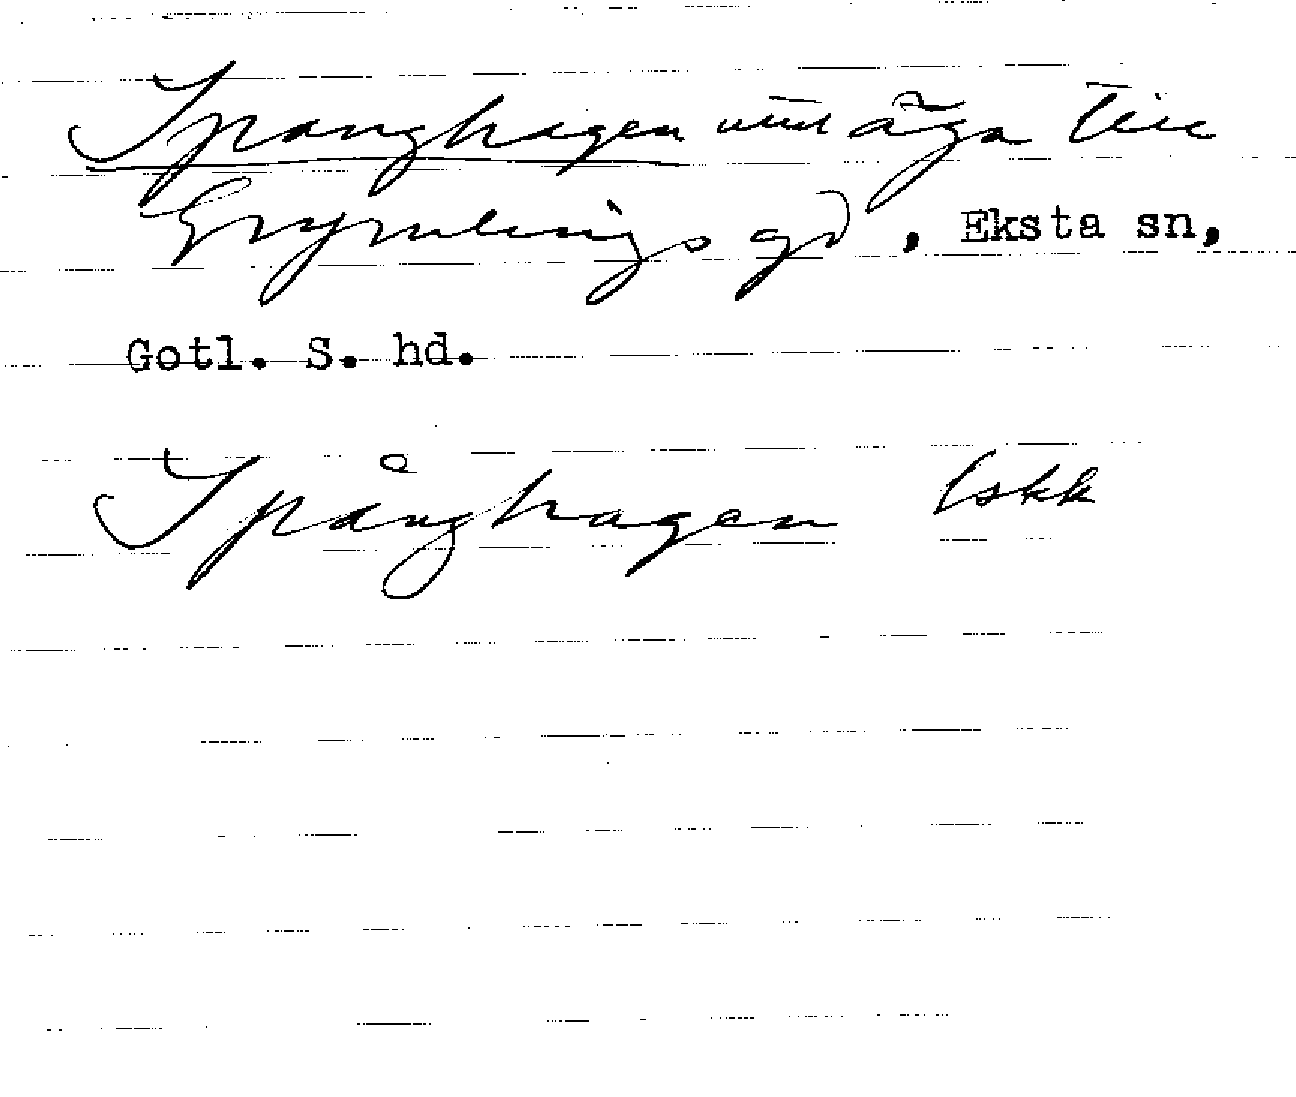 Spanghagen utut äga till
Grymlings gd, Eksta sn,
Gotl. S. hd.
Spånghagen lskk